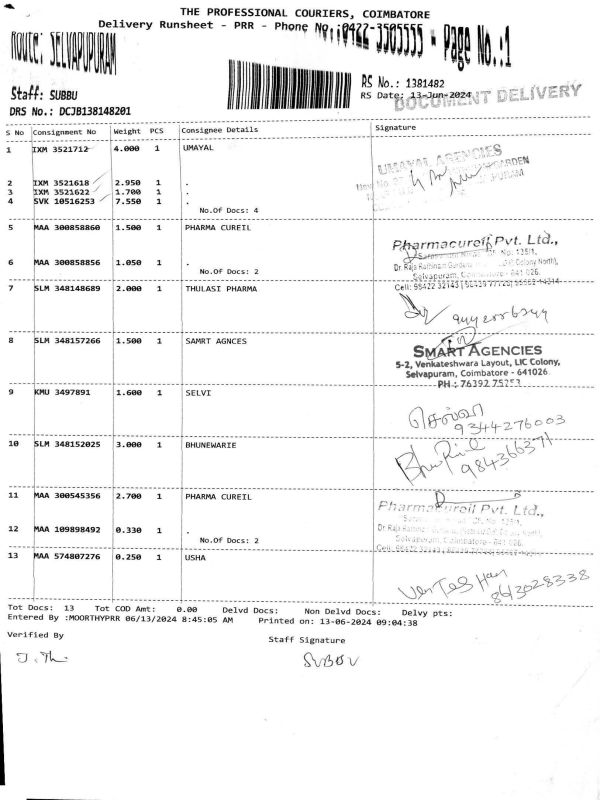 THE PROFESSIONAL COURIERS, COIMBATORE
Delivery Runsheet - PRR - Phone No.:0422-3505555 - Page No.:1
Route: SELVAPUPURAM
Staff: SUBBU
DRS No.: DCJB138148201
RS No.: 1381482
RS Date: 13-Jun-2024
DOCUMENT DELIVERY
S No Consignment No Weight PCS Consignee Details Signature
1 IXM 3521712 4.000 1 UMAYAL
UMAYAL AGENCIES
2 IXM 3521618 2.950 1 .
3 IXM 3521622 1.700 1 .
4 SVK 10516253 7.550 1 .
No.Of Docs: 4
5 MAA 300858860 1.500 1 PHARMA CUREIL
Pharmacureil Pvt. Ltd.,
6 MAA 300858856 1.050 1 .
No.Of Docs: 2
Selvapuram, Coimbatore - 641 026.
7 SLM 348148689 2.000 1 THULASI PHARMA
8 SLM 348157266 1.500 1 SAMRT AGNCES
SMART AGENCIES
5-2, Venkateshwara Layout, LIC Colony,
Selvapuram, Coimbatore - 641026
PH : 76392
9 KMU 3497891 1.600 1 SELVI
செல்வி
9344276003
10 SLM 348152025 3.000 1 BHUNEWARIE
984366371
11 MAA 300545356 2.700 1 PHARMA CUREIL
Pharmacureil Pvt. Ltd.,
12 MAA 109898492 0.330 1 .
No.Of Docs: 2
13 MAA 574807276 0.250 1 USHA
8613028338
Tot Docs: 13 Tot COD Amt: 0.00 Delvd Docs: Non Delvd Docs: Delvy pts:
Entered By :MOORTHYPRR 06/13/2024 8:45:05 AM Printed on: 13-06-2024 09:04:38
Verified By
Staff Signature
SUBBU